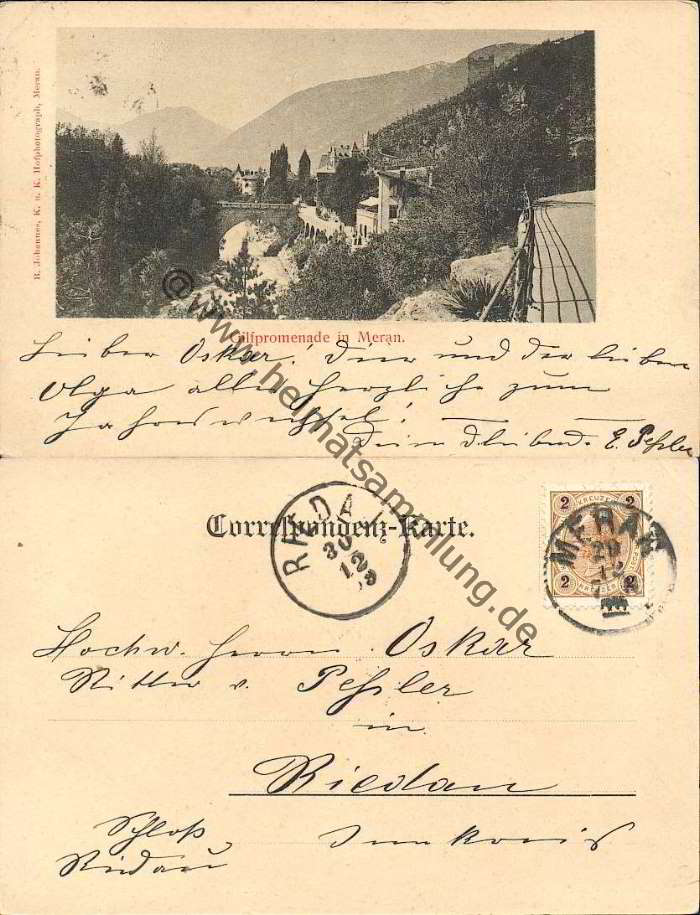 B. Johannes, K. u. K. Hofphotograph, Meran.
Gilfpromenade in Meran.
Lieber Oskar! Dier und der lieben
Olga alles herzliche zum
Jahreswechsel!
Dein E. Peßler
Correspondenz-Karte.
RIEDA
30
12
2 KREUZER 2
2 2
MERAN
29
12
Hochw. Herrn Oskar
Ritter v. Peßler
in
Riedau
Schloß Innkreis
Riedau
©www.heimatsammlung.de